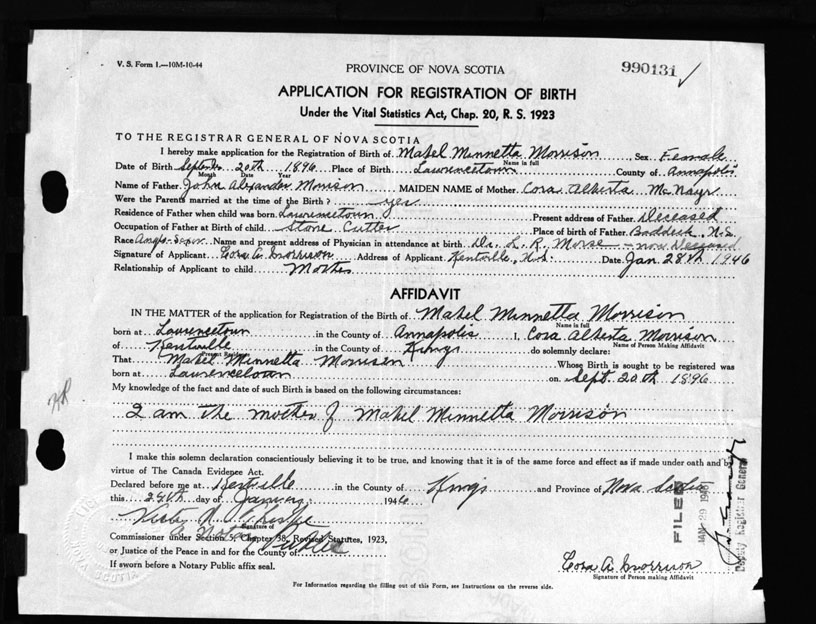 V. S. Form 1.—10M-10-44
PROVINCE OF NOVA SCOTIA
990131
APPLICATION FOR REGISTRATION OF BIRTH
Under the Vital Statistics Act, Chap. 20, R. S. 1923
TO THE REGISTRAR GENERAL OF NOVA SCOTIA
I hereby make application for the Registration of Birth of Mabel Minnetta Morrison, Sex Female
Name in full
Date of Birth September 20th 1896 Place of Birth Lawrencetown County of Annapolis
Month Date Year
Name of Father John Alexander Morrison MAIDEN NAME of Mother Cora Alberta McNayr
Were the Parents married at the time of the Birth? yes
Residence of Father when child was born Lawrencetown Present address of Father Deceased
Occupation of Father at Birth of child Stone Cutter Place of birth of Father Baddeck, N.S.
Race Anglo-Saxon Name and present address of Physician in attendance at birth Dr. L. R. Morse - now Deceased
Signature of Applicant Cora A. Morrison Address of Applicant Kentville, N.S. Date Jan 28th 1946
Relationship of Applicant to child Mother
AFFIDAVIT
IN THE MATTER of the application for Registration of the Birth of Mabel Minnetta Morrison
Name in full
born at Lawrencetown in the County of Annapolis I, Cora Alberta Morrison
Name of Person Making Affidavit
of Kentville in the County of Kings do solemnly declare:
Present Residence
That Mabel Minnetta Morrison Whose Birth is sought to be registered was
born at Lawrencetown on Sept. 20th 1896
My knowledge of the fact and date of such Birth is based on the following circumstances:
I am the mother of Mabel Minnetta Morrison
I make this solemn declaration conscientiously believing it to be true, and knowing that it is of the same force and effect as if made under oath and by
virtue of The Canada Evidence Act.
Declared before me at Kentville in the County of Kings and Province of Nova Scotia
this 28th day of January 1946
Signature of
Commissioner under Section 5, Chapter 38, Revised Statutes, 1923,
Notary Public
or Justice of the Peace in and for the County of
If sworn before a Notary Public affix seal.
Cora A. Morrison
Signature of Person making Affidavit
For Information regarding the filling out of this Form, see Instructions on the reverse side.
FILED
JAN 29 1946
Deputy Registrar General
NOVA SCOTIA